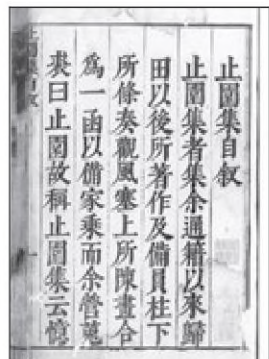 止園集自叙
止園集者集余通籍以來歸
田以後所著作及備員柱下
所條奏觀風塞上所陳畫合
爲一函以備家乘而余營菟
裘曰止園故稱止園集云憶
止園集自叙